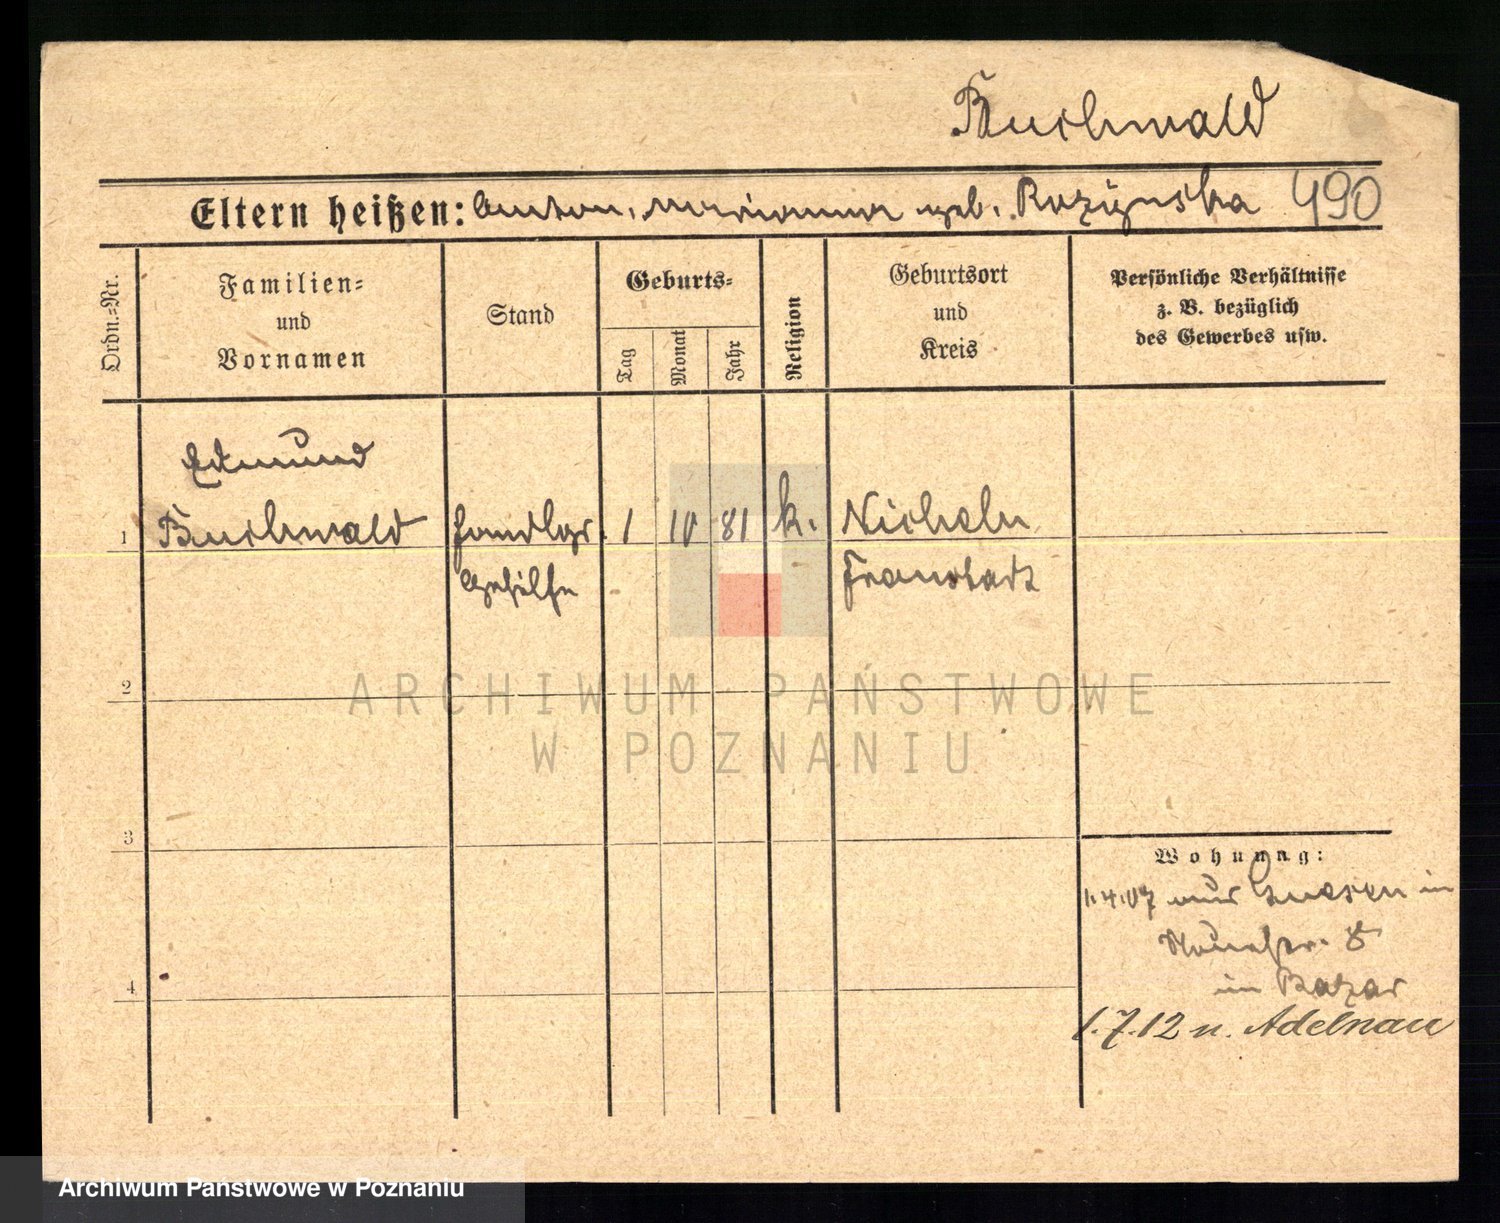 Buchwald
Eltern heißen: Anton, Marianna geb. Rozynska 490
Ordn.-Nr.
Familien-
und
Vornamen
Stand
Geburts-
Tag
Monat
Jahr
Religion
Geburtsort
und
Kreis
Persönliche Verhältnisse
z. B. bezüglich
des Gewerbes usw.
Edmund
1 Buchwald Handlgs. 1 10 81 k. Nicheln
Gehilfe Fraustadt
2
ARCHIWUM PAŃSTWOWE
W POZNANIU
3
Wohnung:
1.4.07 aus Gnesen in
8
4
im Bazar
1.7.12 n. Adelnau
Archiwum Państwowe w Poznaniu